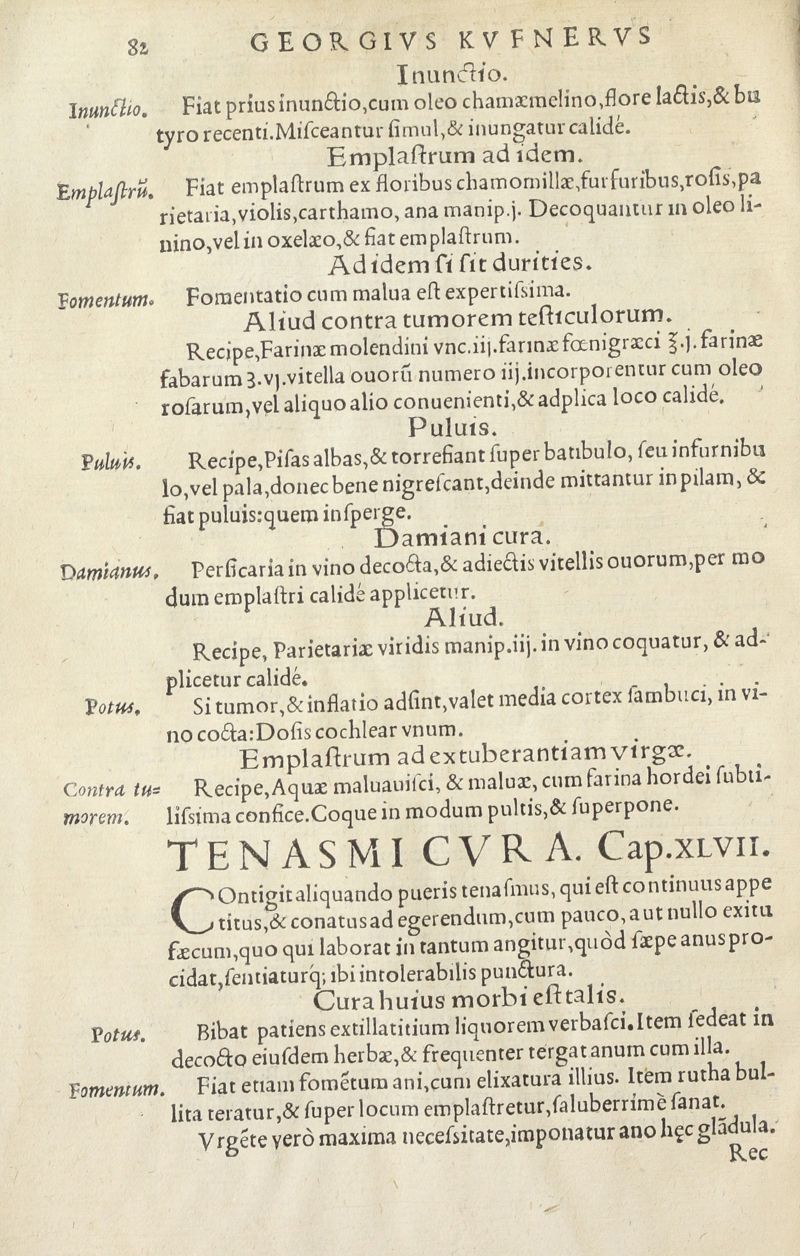 82 GEORGIVS KVFNERVS
Inunctio.
Inunctio. Fiat prius inunctio,cum oleo chamæmelino,flore lactis,& bu
tyro recenti.Miſceantur ſimul,& inungatur calidé.
Emplaſtrum ad idem.
Emplaſtrũ. Fiat emplaſtrum ex floribus chamomillæ,furfuribus,roſis,pa
rietaria,violis,carthamo, ana manip.j. Decoquantur in oleo li-
nino,vel in oxelæo,& fiat emplaſtrum.
Ad idem ſi ſit durities.
Fomentum. Fomentatio cum malua eſt expertiſsima.
Aliud contra tumorem teſticulorum.
Recipe,Farinæ molendini vnc.iij.farinæ fœnigræci ℥.j.farinæ
fabarum ʒ.vj.vitella ouorũ numero iij.incorporentur cum oleo
roſarum,vel aliquo alio conuenienti,& adplica loco calidé.
Puluis.
Puluis. Recipe,Piſas albas,& torrefiant ſuper batibulo, ſeu infurnibu
lo,vel pala,donec bene nigreſcant,deinde mittantur in pilam, &
fiat puluis:quem inſperge.
Damiani cura.
Damianus. Perſicaria in vino decocta,& adiectis vitellis ouorum,per mo
dum emplaſtri calidé applicetur.
Aliud.
Recipe, Parietariæ viridis manip.iij. in vino coquatur, & ad-
plicetur calidé.
Potus. Si tumor,& inflatio adſint,valet media cortex ſambuci, in vi-
no cocta:Doſis cochlear vnum.
Emplaſtrum ad extuberantiam virgæ.
Contra tu= Recipe,Aquæ maluauiſci, & maluæ, cum farina hordei ſubti-
morem. liſsima confice.Coque in modum pultis,& ſuperpone.
TENASMI CVRA. Cap.XLVII.
COntigit aliquando pueris tenaſmus, qui eſt continuus appe
titus,& conatus ad egerendum,cum pauco, aut nullo exitu
fæcum,quo qui laborat in tantum angitur,quòd ſæpe anus pro-
cidat,ſentiaturq́; ibi intolerabilis punctura.
Cura huius morbi eſt talis.
Potus. Bibat patiens extillatitium liquorem verbaſci.Item ſedeat in
decocto eiuſdem herbæ,& frequenter tergat anum cum illa.
Fomentum. Fiat etiam fomẽtum ani,cum elixatura illius. Item rutha bul-
lita teratur,& ſuper locum emplaſtretur,ſaluberrimè ſanat.
Vrgẽte verò maxima neceſsitate,imponatur ano hęc glãdula.
Rec